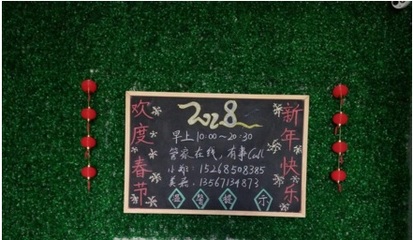 欢度春节
早上10:00~20:30
管家在线,有事Call
15268508385
13567134873
新年快乐